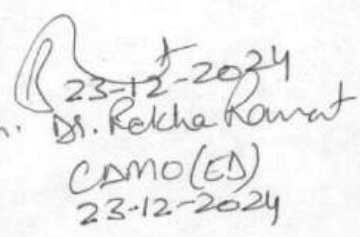 23-12-2024
Dr. Rekha Rawat
CDMO (ED)
23-12-2024